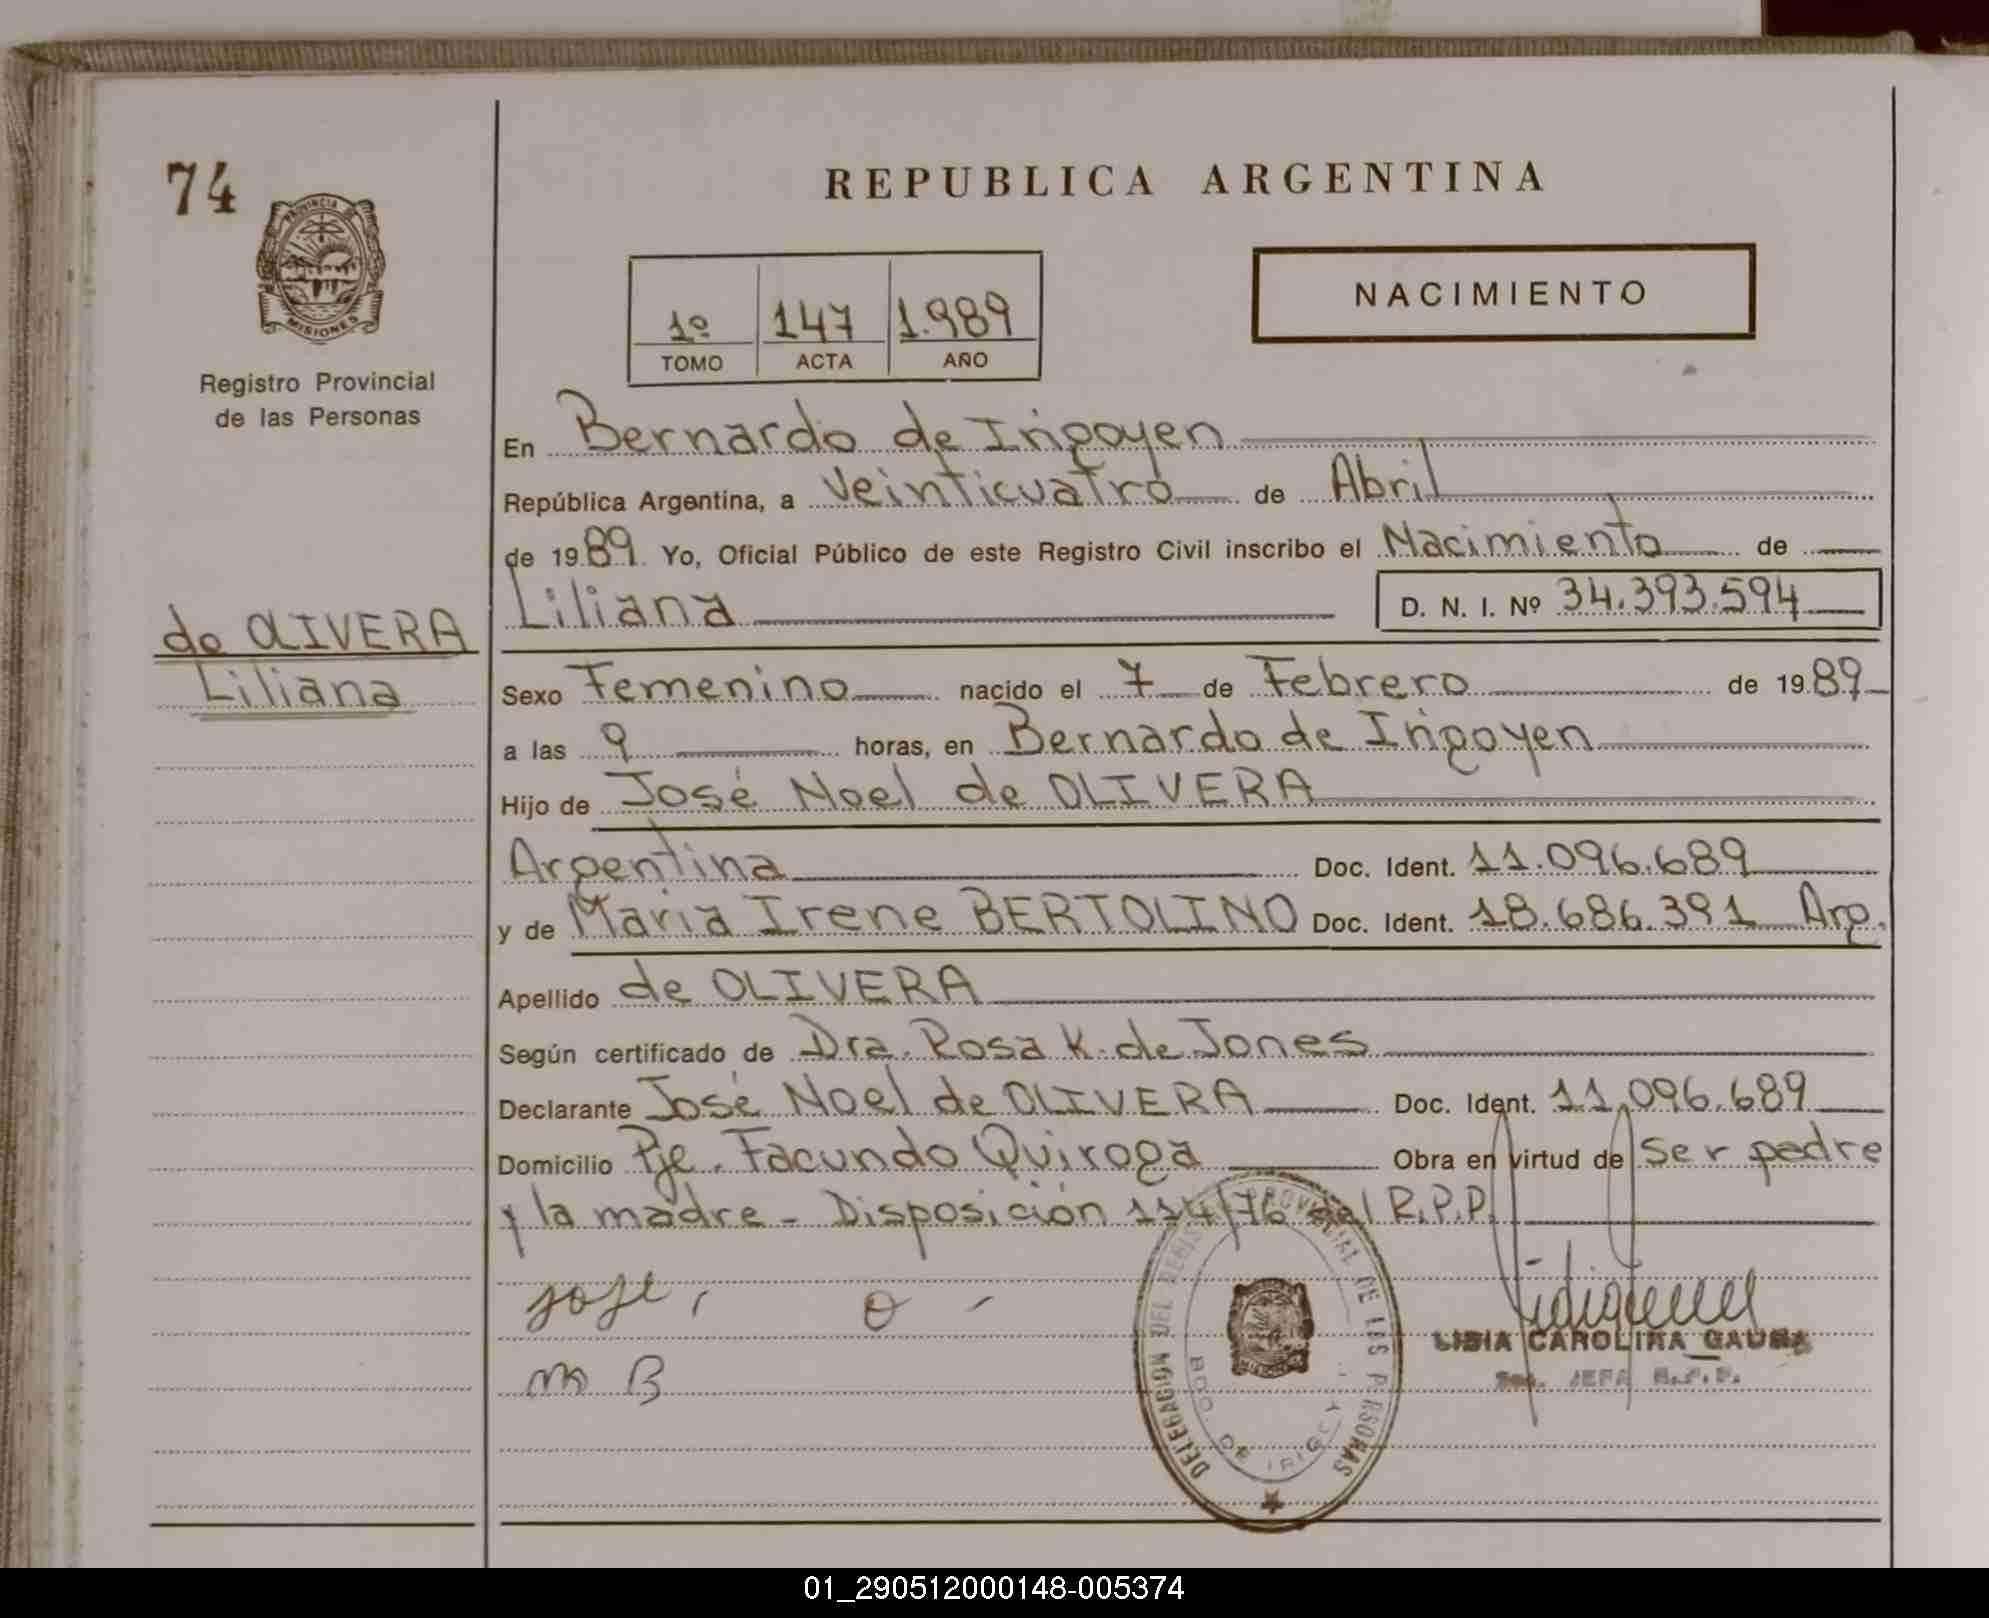 74
REPUBLICA ARGENTINA
PROVINCIA DE
MISIONES
Registro Provincial
de las Personas
1º 147 1.989
TOMO ACTA AÑO
NACIMIENTO
En Bernardo de Irigoyen
República Argentina, a Veinticuatro de Abril
de 1989. Yo, Oficial Público de este Registro Civil inscribo el Nacimiento de
Liliana D. N. I. Nº 34.393.594
de OLIVERA
Liliana
Sexo Femenino nacido el 7 de Febrero de 1989
a las 9 horas, en Bernardo de Irigoyen
Hijo de José Noel de OLIVERA
Argentina Doc. Ident. 11.096.689
y de Maria Irene BERTOLINO Doc. Ident. 18.686.391 Arg.
Apellido de OLIVERA
Según certificado de Dra. Rosa K. de Jones
Declarante José Noel de OLIVERA Doc. Ident. 11.096.689
Domicilio Pje. Facundo Quiroga Obra en virtud de ser padre
y la madre - Disposición 114/76 del R.P.P.
José, O -
m B
DELEGACION DEL REGISTRO PROVINCIAL DE LAS PERSONAS
BDO. DE IRIGOYEN
LIDIA CAROLINA
JEFA R.P.P.
01_290512000148-005374